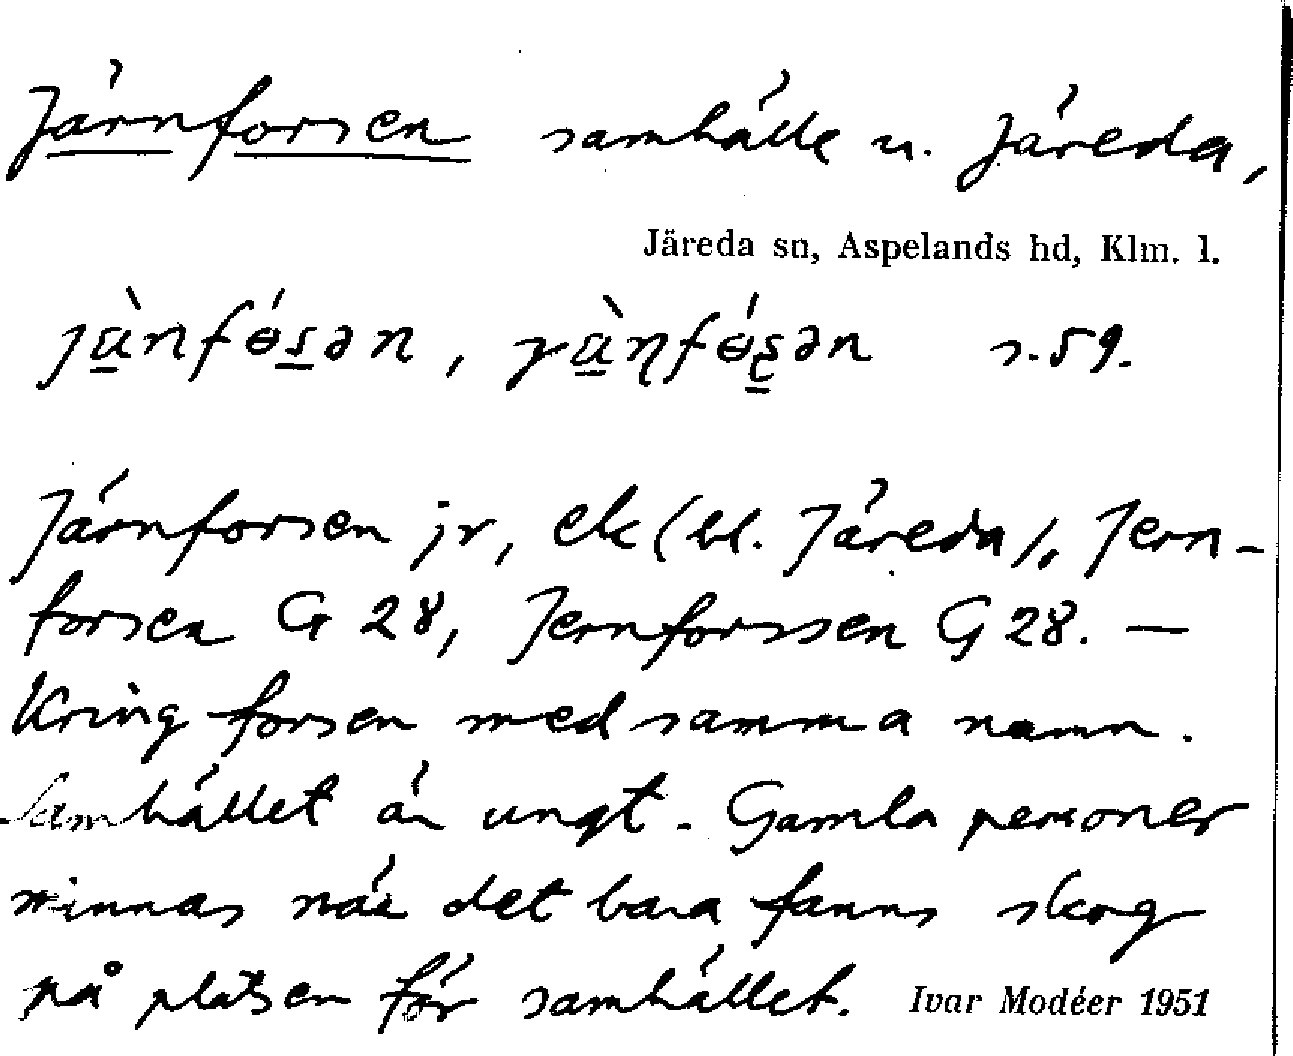 Järnforsen samhälle u. Järeda,
Järeda sn, Aspelands hd, Klm. l.
jὰnfɵ́sən, jὰɳfɵ́ʂən s. 59.
Järnforsen jr, ek (bl. Järeda), Jern-
forsen G 28, Jernforssen G 28. —
Kring forsen med samma namn.
Samhället är ungt. Gamla personer
minnas när det bara fanns skog
på platsen för samhället. Ivar Modéer 1951